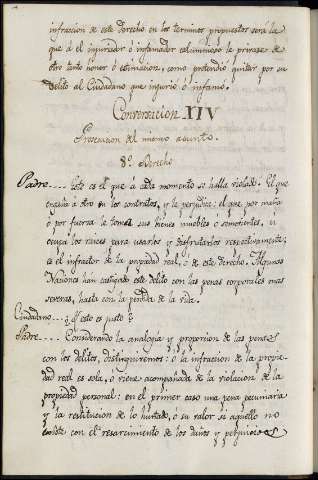 infraccion de este derecho en los terminos propuestos será la
que á el injuriador ó infamador calumnioso le privase de
otro tanto honor ó estimacion, como pretendió quitar por su
delito al Ciudadano que injurió ó infamó.
Conversacion XIV
Prosecucion del mismo asunto.
8º. Derecho
Padre.... Este es el que á cada momento se halla violado. El que
engaña á otro en los contratos, y le perjudica: el que por maña
ó por fuerza le toma sus bienes muebles ó semovientes, ú
ocupa los raices para usarlos y disfrutarlos respectivamente;
es el infractor de la propiedad real, ó de este derecho. Algunas
Naciones han castigado este delito con las penas corporales mas
severas, hasta con la pérdida de la vida.
Ciudadano.... ¿Y esto es justo?
Padre.... Considerando la analogía y proporcion de las penas
con los delitos, distinguiremos: ó la infraccion de la propie-
dad real es sola, ó viene acompañada de la violacion de la
propiedad personal: en el primer caso una pena pecuniaria
y la restitucion de lo hurtado, ó su valor si aquello no
existe con el resarcimiento de los daños y perjuicios